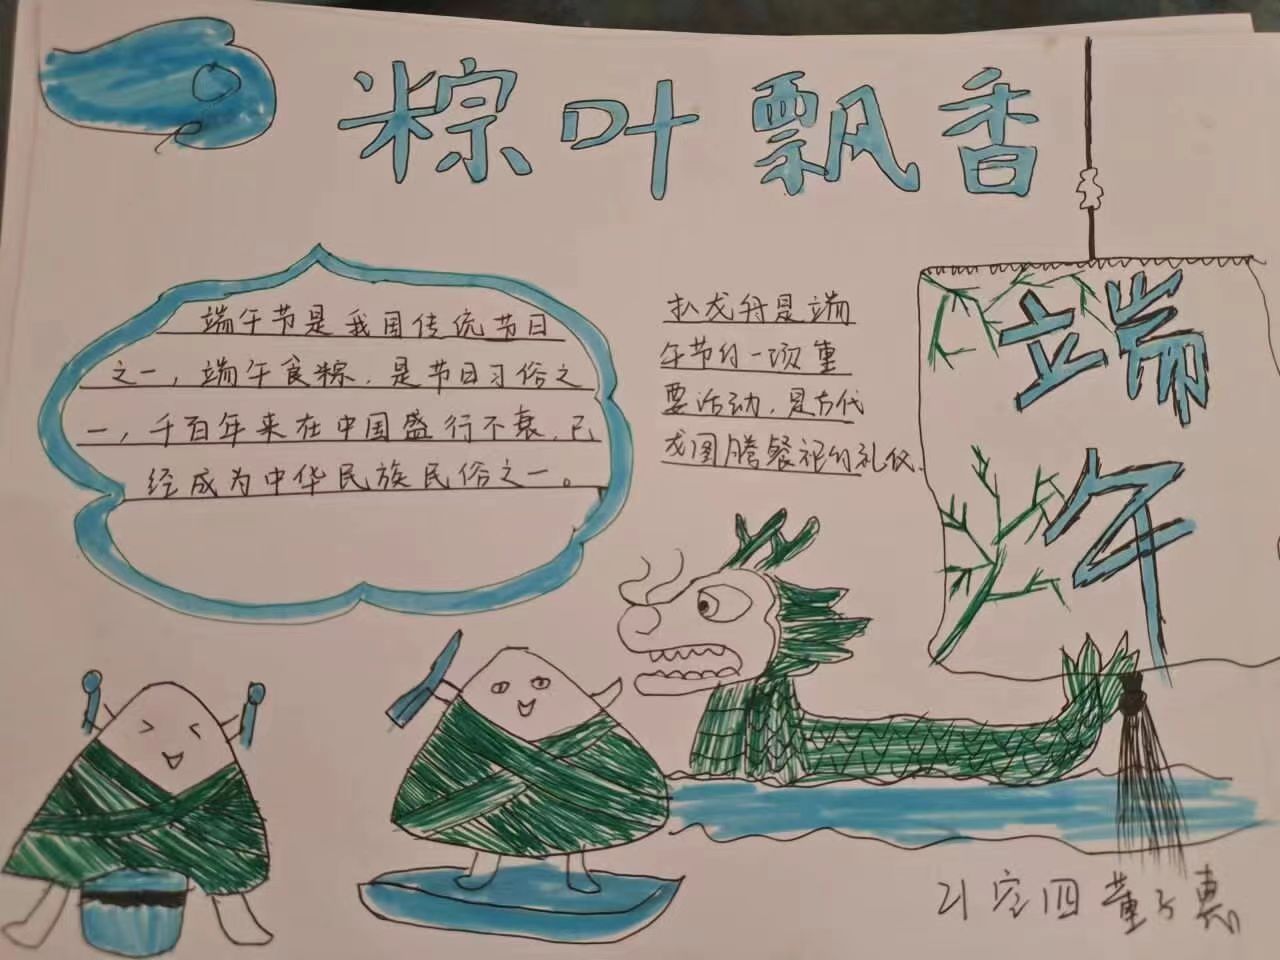 粽叶飘香
端午节是我国传统节日
之一，端午食粽，是节日习俗之
一，千百年来在中国盛行不衰，已
经成为中华民族民俗之一。
扒龙舟是端
午节的一项重
要活动，是古代
龙图腾祭祀的礼仪.
端
午
21定四 董子惠